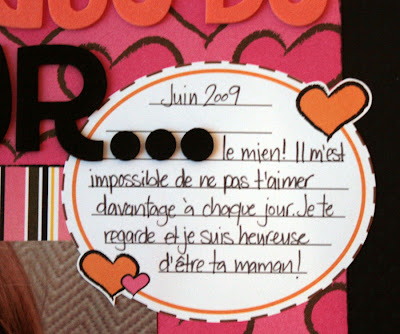 R...
Juin 2009
le mien! Il m'est
impossible de ne pas t'aimer
davantage à chaque jour. Je te
regarde et je suis heureuse
d'être ta maman!